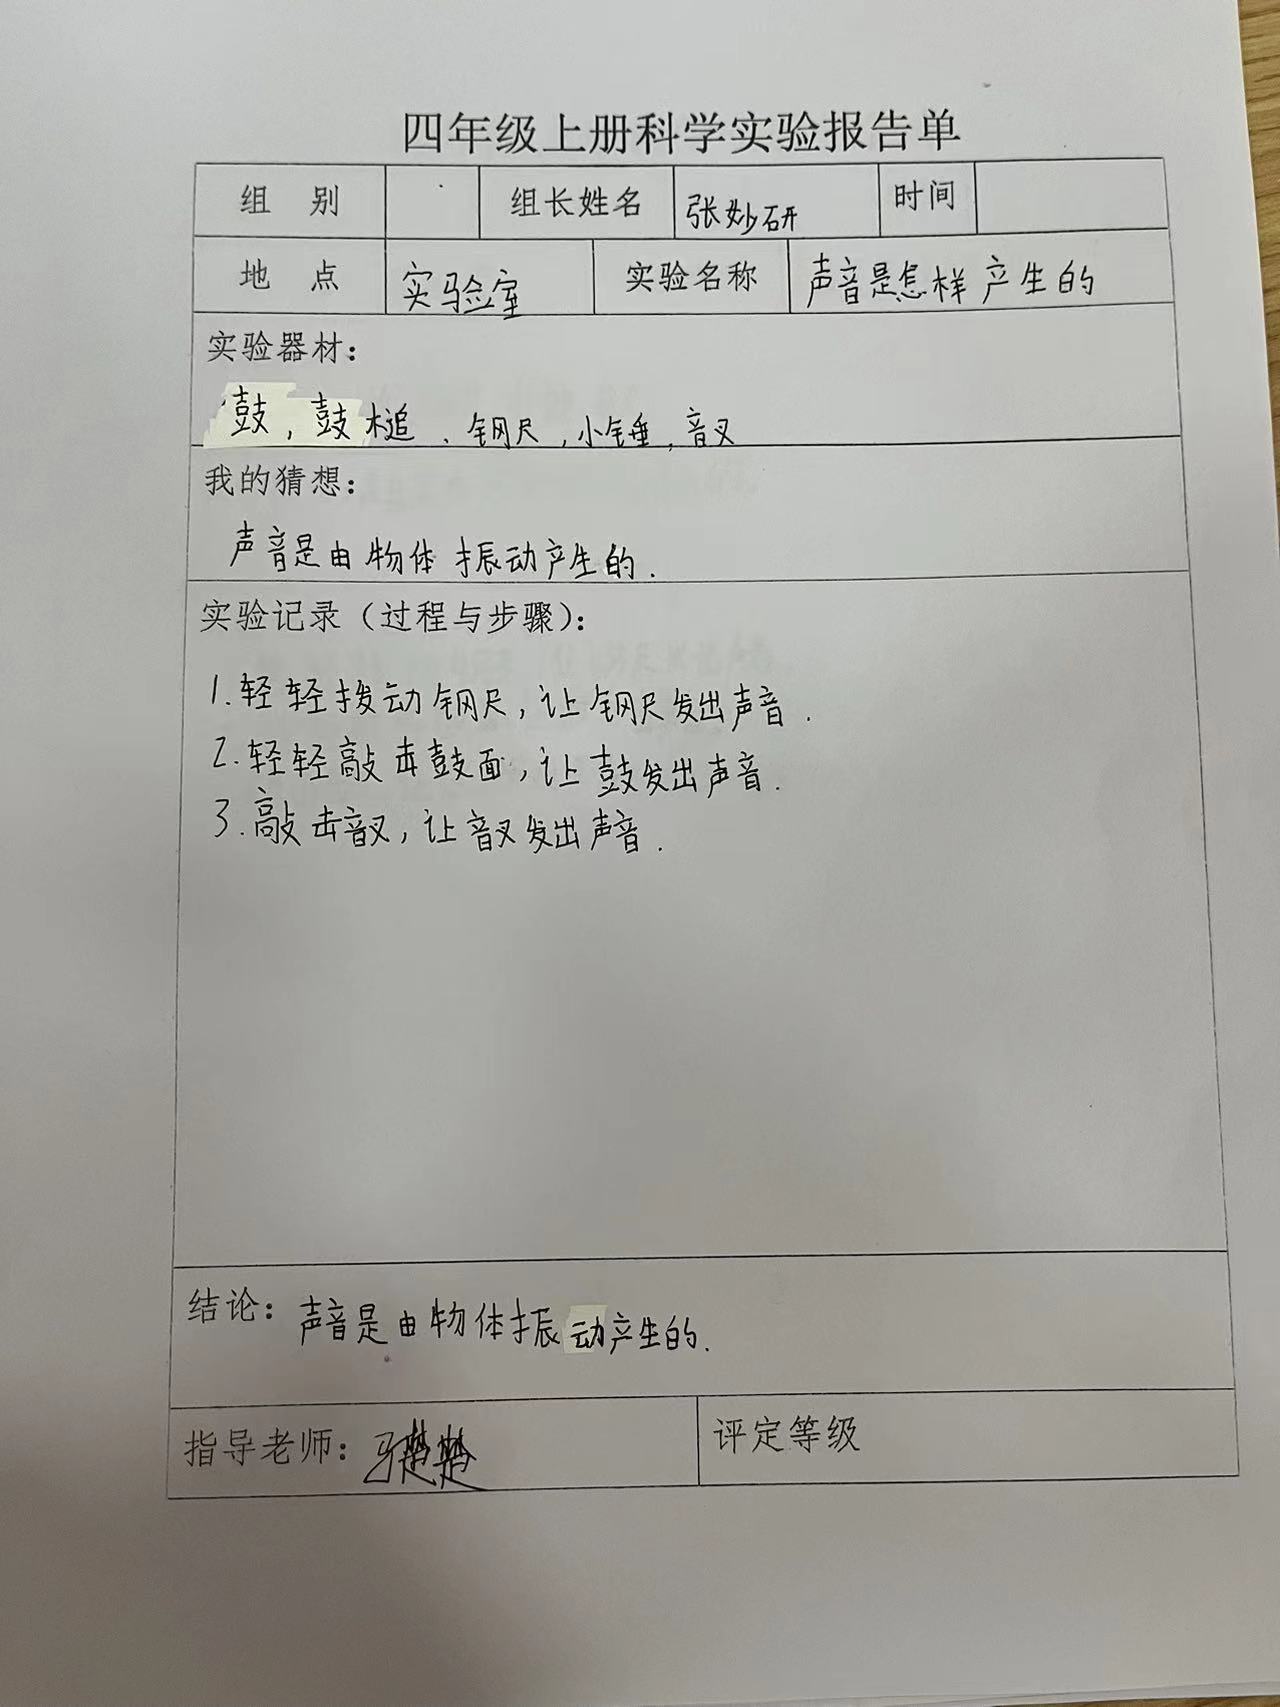 四年级上册科学实验报告单
组 别 组长姓名 张妙研 时间
地 点 实验室 实验名称 声音是怎样产生的
实验器材：
鼓，鼓槌、钢尺，小锤，音叉
我的猜想：
声音是由物体振动产生的.
实验记录（过程与步骤）：
1.轻轻拨动钢尺，让钢尺发出声音.
2.轻轻敲击鼓面，让鼓发出声音.
3.敲击音叉，让音叉发出声音.
结论：声音是由物体振动产生的.
指导老师：马楚楚 评定等级